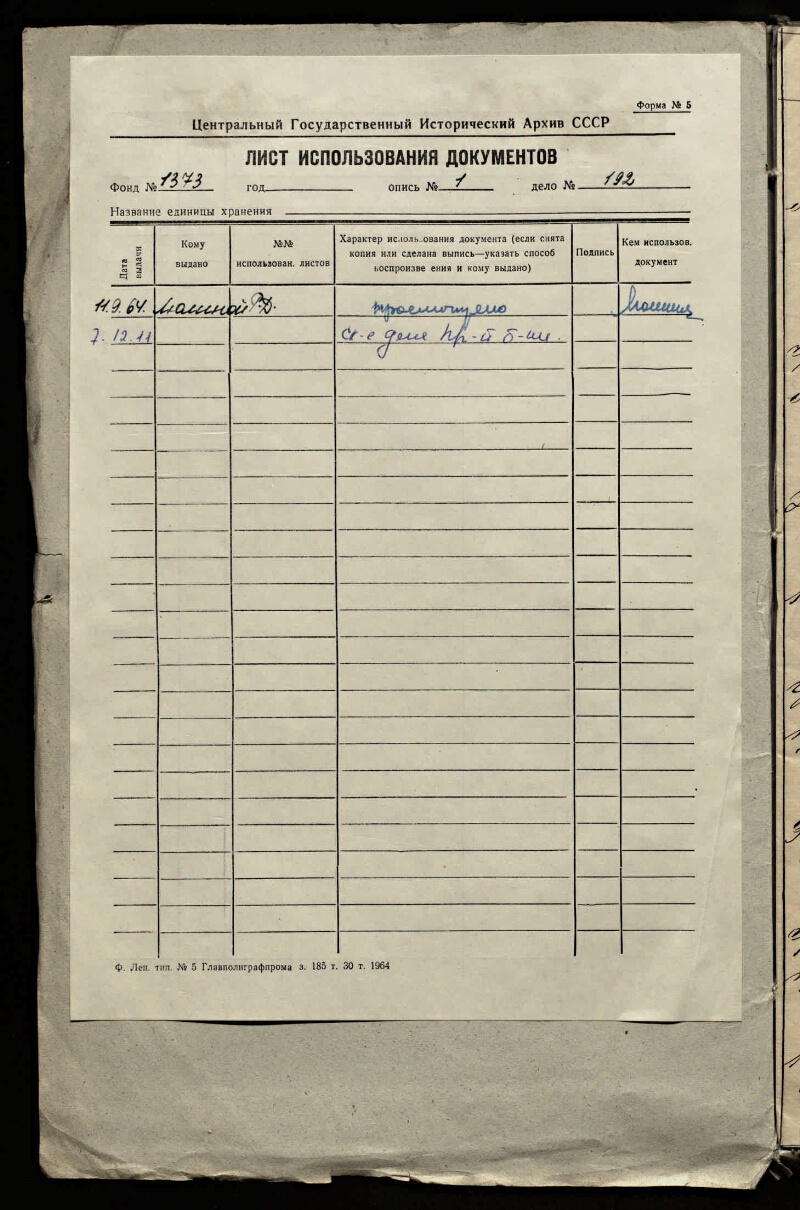 Форма № 5
Центральный Государственный Исторический Архив СССР
ЛИСТ ИСПОЛЬЗОВАНИЯ ДОКУМЕНТОВ
Фонд № 1373 год опись № 1 дело № 192
Название единицы хранения
Дата выдачи
Кому выдано
№№ использован. листов
Характер использования документа (если снята копия или сделана выпись—указать способ воспроизведения и кому выдано)
Подпись
Кем использов. документ
11.9.64. просмотрено
7. 12.11
Ф. Лен. тип. № 5 Главполиграфпрома з. 185 т. 30 т. 1964